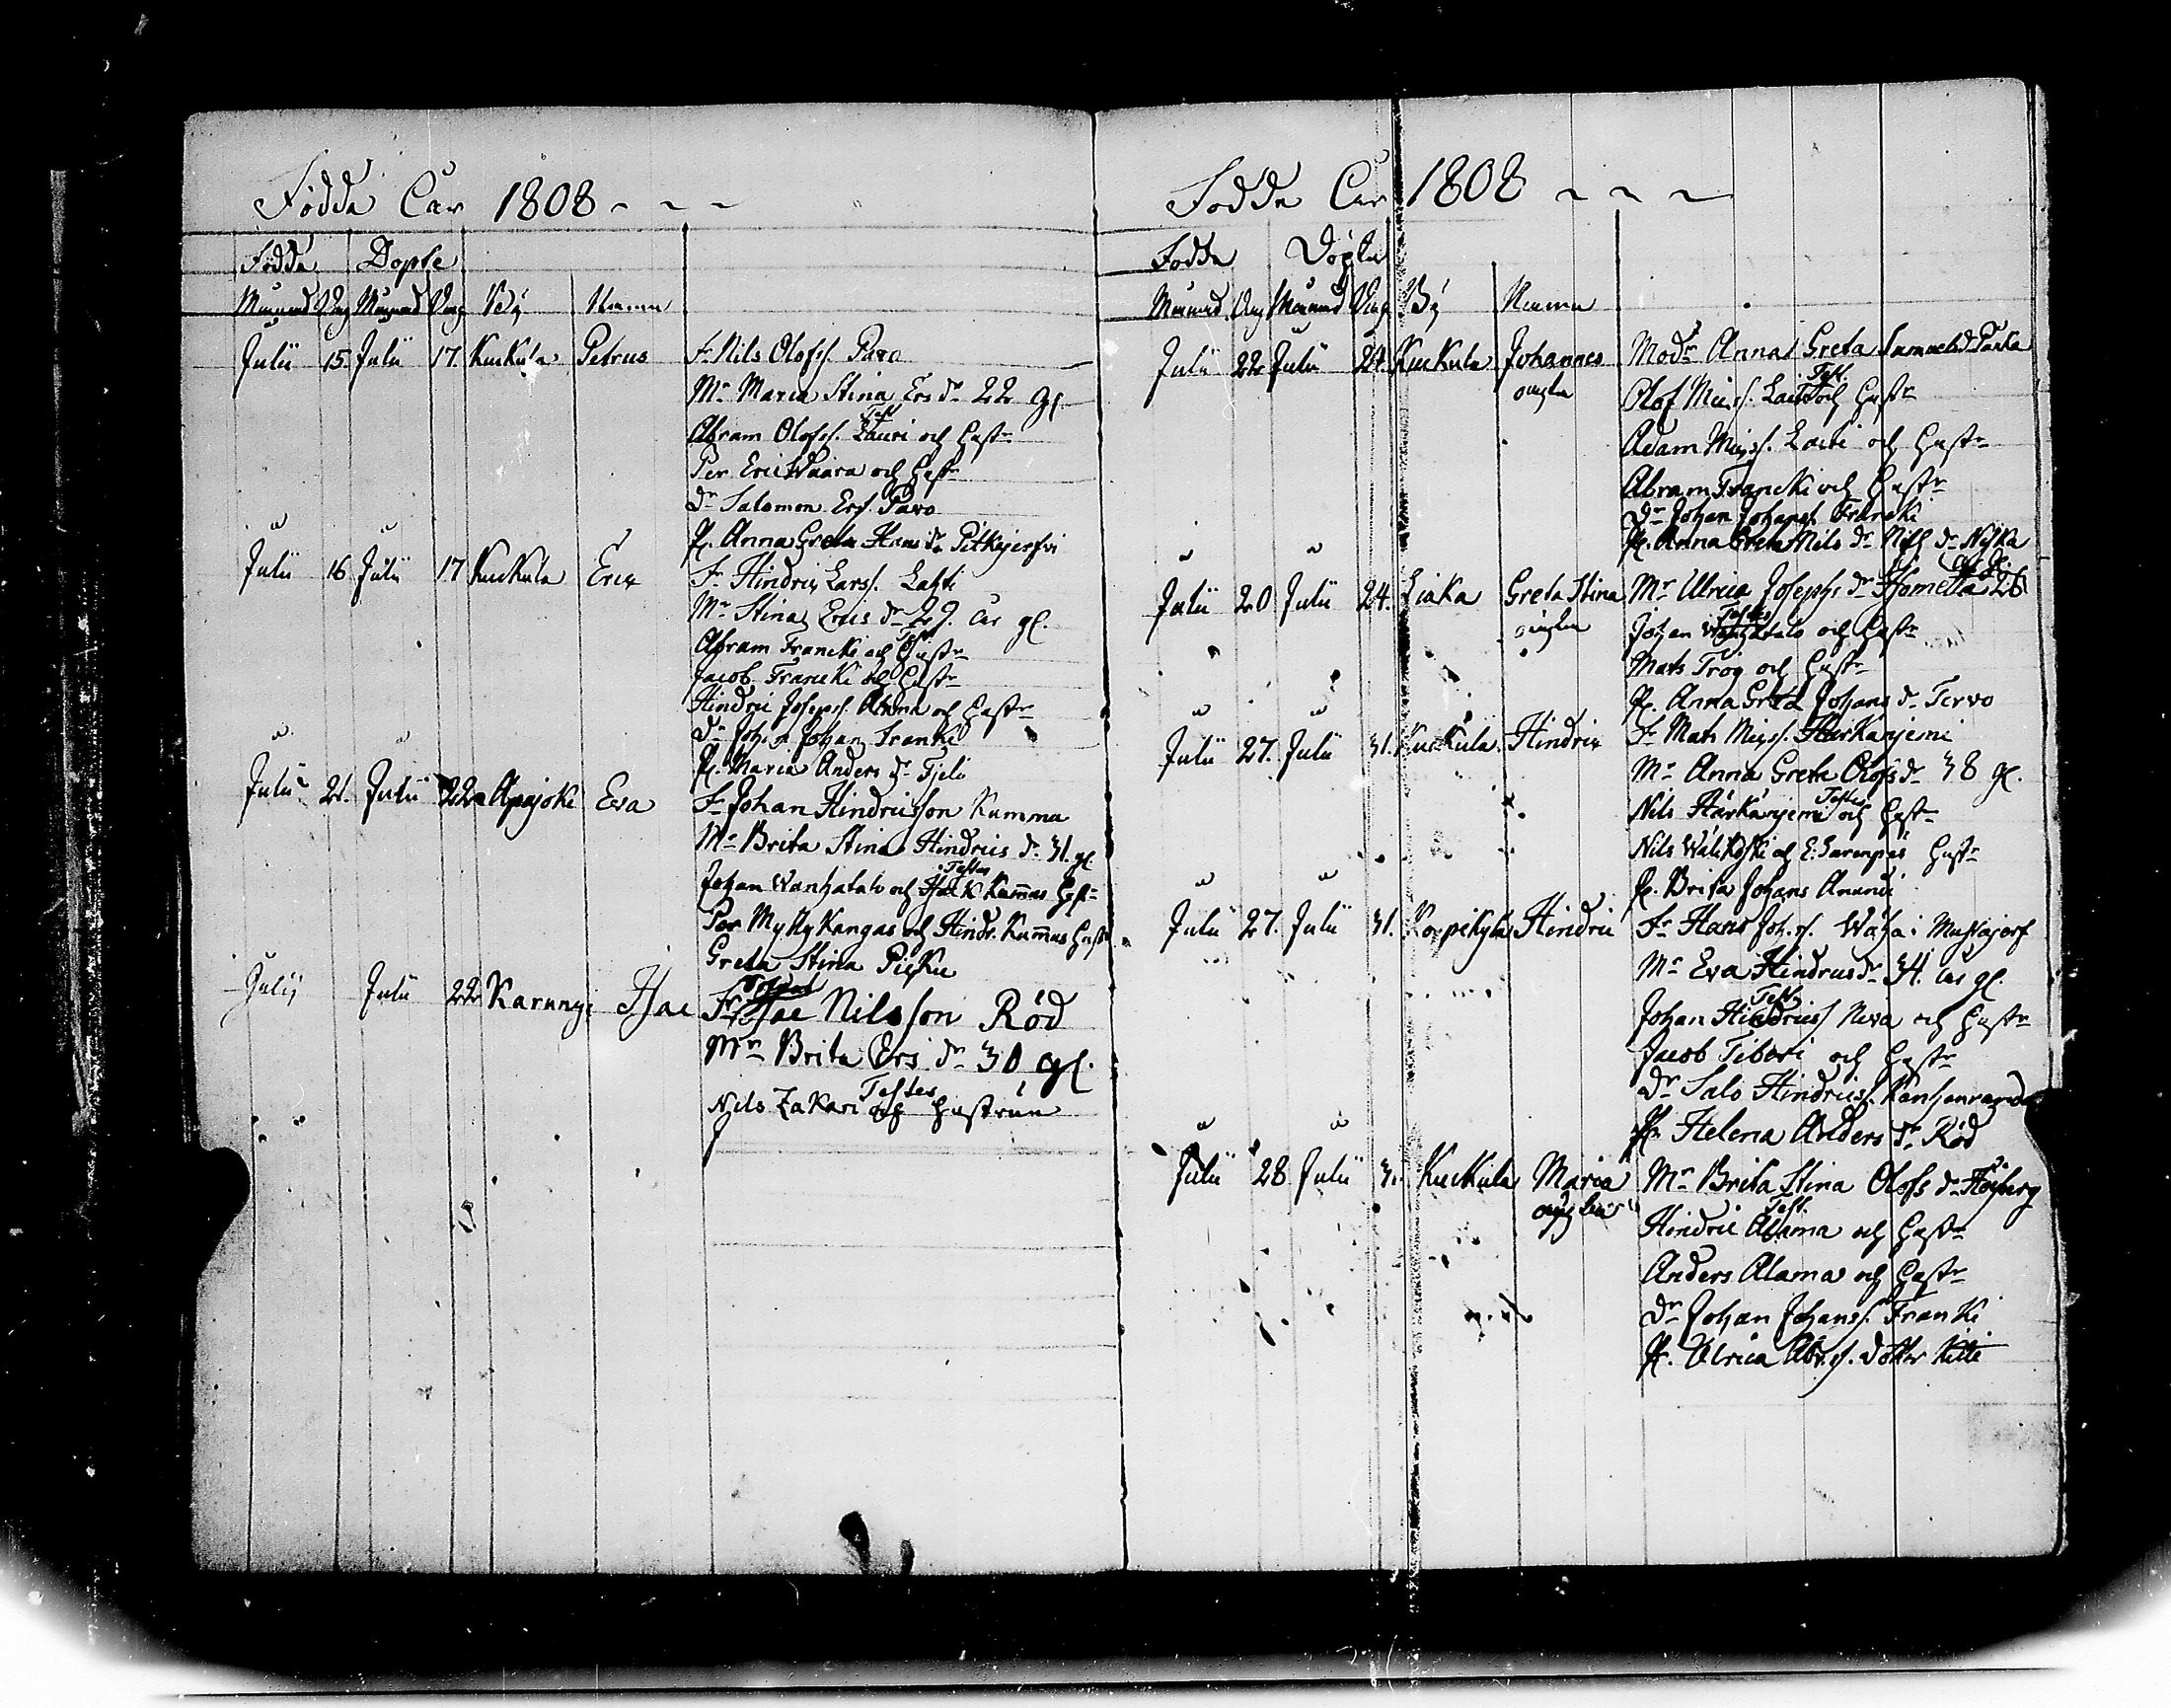 Födde Åar 1808
Födde Döpte
Månad Dag Månad Dag Bÿ Namn
Julii 15. Julii 17. KucKula Petrus Fr Nils Olofss. Pavo
Mr Maria Stina Ers dr 22 gl.
Test
Abram Olofss. Lauri och Hustr
Per Eric Waara och Hustr
Dr Salomon Ers. Pavo
P. Anna Greta Hans dr Pitkejerfvi
Julii 16 Julii 17 KucKula Eric Fr Hindric Larss. Lahti
Mr Stina Erics dr 29. år gl.
Test
Abram Francki och Hustr
Jacob Francki och Hustr
Hindric Josepss. Alama och Hustr
Dr Joh. Johan Franki
P. Maria Anders dr
Julii 21. Julii 22 Apajoki Eva Fr Johan Hindricsson Kumma
Mr Brita Stina Hindrics dr 31. gl
Testes
Johan Wanhatalo och Kummas Hustr
Per Myllykangas och Hindr. Kummas Hustr
Greta Stina
Julij Julii 22 Karungi Isac Fr Isac Nilsson Röd
Mr Brita Ers dr 30 gl.
Testes
Nils Zakari och Hustrun
Födde Åar 1808
Födde Döpte
Månad Dag Månad Dag Bÿ Namn
Julii 22 Julii 24. KucKula Johannes Modr Anna Greta Samuelsd
oägta Test.
Olof Mickss. Laiti och Hustr
Adam Mickss. Laiti och Hustr
Abram Francki och Hustr
Dr Johan Johanss. Francki
P. Anna Greta Nils dr
Julii 20 Julii 24. Liaka Greta Stina Mr Ulrica Josephs dr 26
oägta Testes
Johan Wanhatalo och Hustr
Mats Trög och Hustr
P. Anna Greta Johans dr Tervo
Julii 27. Julii 31. KucKula Hindric Fr Mats Mickss. Harkaniemi
Mr Anna Greta Olofs dr 38 gl.
Testes
Nils Härkäniemi och Hustr
Nils Wälikoski och Hustr
P. Brita Johans Anundi
Julii 27. Julii 31. Korpikylä Hindric Fr Hans Joh.s. i Mustajerf
Mr Eva Hindrics dr 34. år gl.
Test
Johan Hindricss Neva och Hustr
Jacob och Hustr
Dr Salo Hindricss. Kanhanranda
P. Helena Anders dr Röd
Julii 28 Julii 31 KucKula Maria Mr Brita Stina Olofs dr
oägta Test.
Hindric Alama och Hustr
Anders Alama och Hustr
Dr Johan Johanss. Franki
P. Ulrica dotter